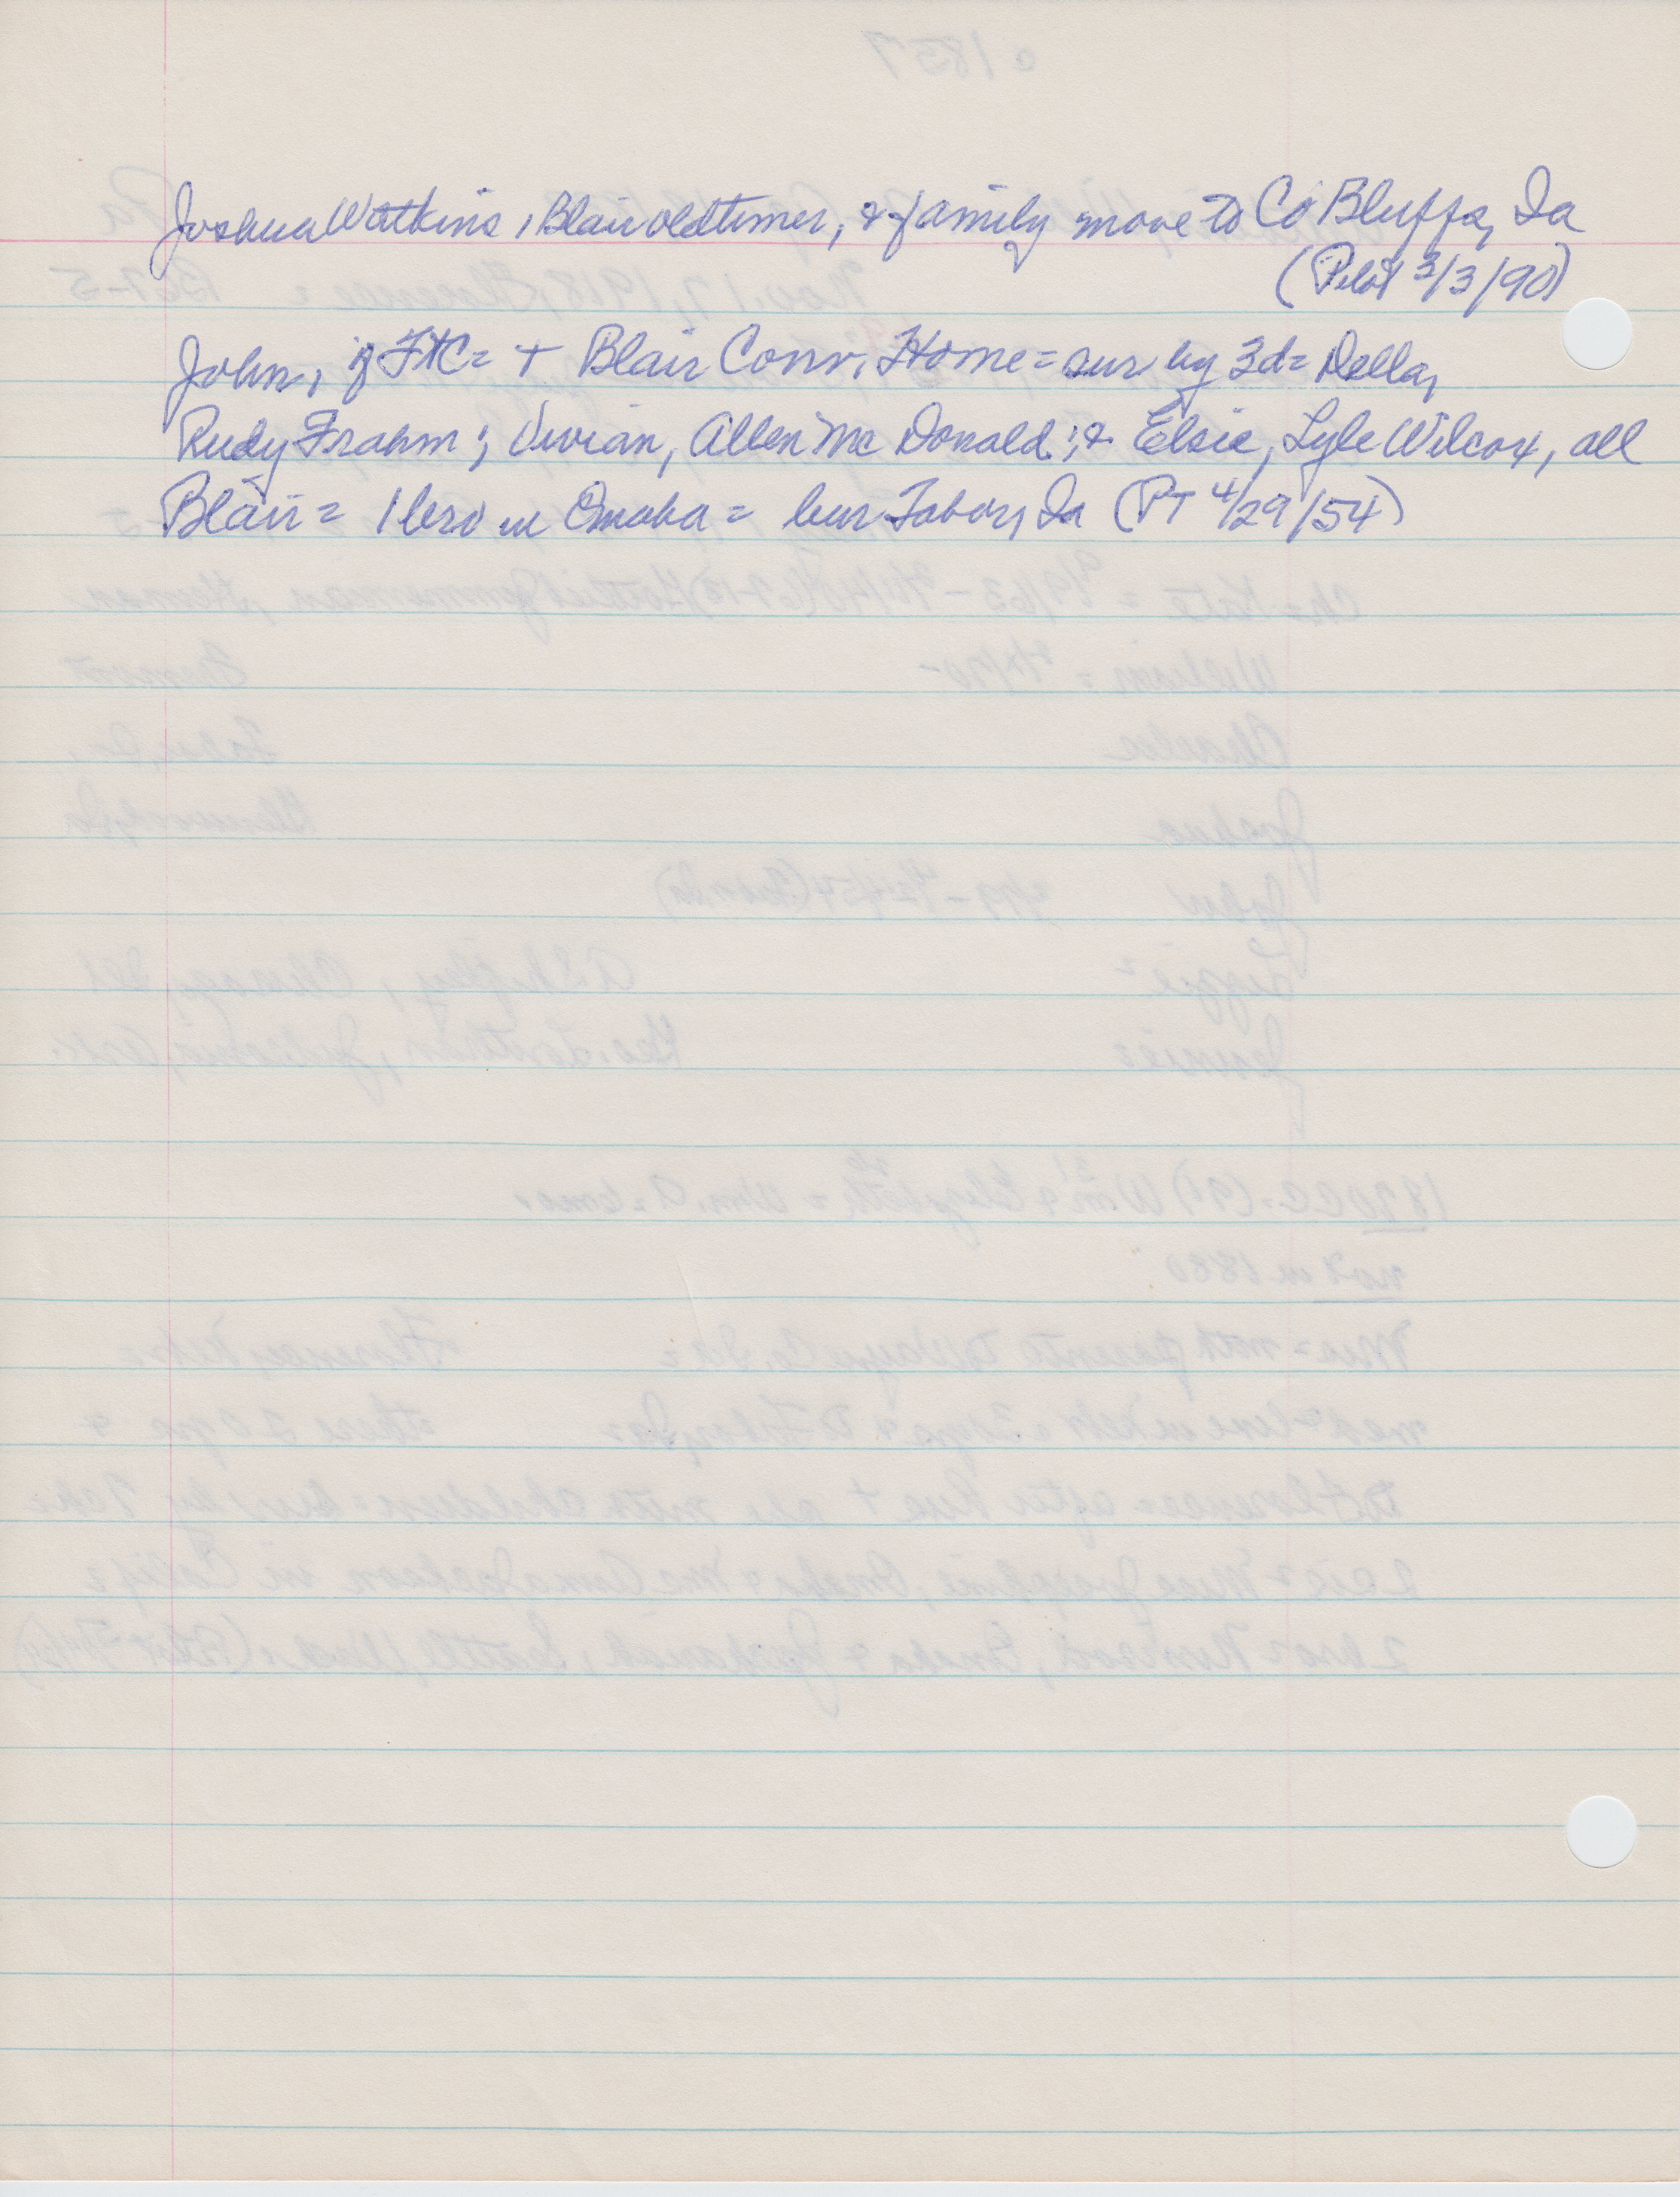 Joshua Watkins, Blair oldtimer, & family move to Co Bluffs, Ia
(Pilot 3/3/90)
John, of Ft C = + Blair Conv. Home = sur by 3d = Della,
Rudy Frahm; Vivian, Allen McDonald; & Elsie, Lyle Wilcox, all
Blair = 1 bro in Omaha = bur Tabor, Ia (PT 4/29/54)